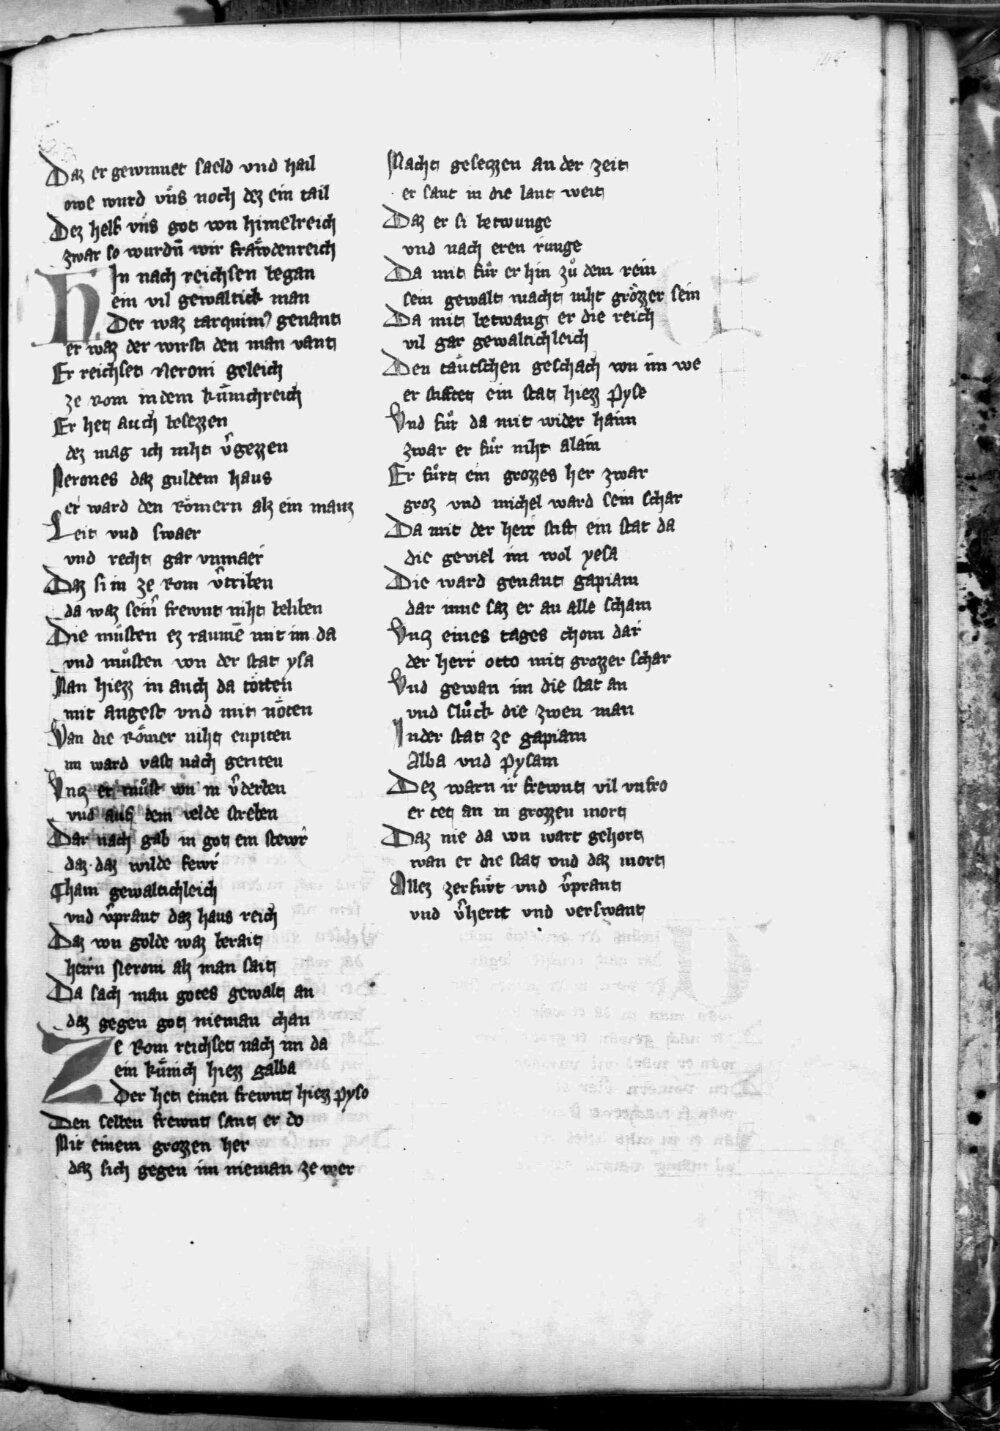 Daz er gewinnet saeld vnd hail
owe wurd vns noch dez ein tail
Dez helf vns got von himelreich
zwar so wurdn wir fraẃdenreich
Hin nach reichsen began
ein vil gewaltick man
Der waz tarquini⁹ genant
er waz der wirst den man vant
Er reichset Neroni geleich
ze Rom in dem kv́nichreich
Er het auch besezzen
dez mag ich niht v͛gezzen
Nerones daz guldein haus
er ward den Rômern alz ein mauz
Leit vnd swaer
vnd recht gar vnmaer
Daz si in ze Rom v͛triben
da waz sein͛ frewnt niht beliben
Die mů́sten ez raumē mit im da
vnd můsten von der stat ysa
Man hiezz in auch da tôtten
mit angest vnd mit nôten
Wan die Rômer niht enpiten
im ward vast nach geriten
Vntz er můst von in v͛derben
vnd aus dem velde streben
Dar nach gab in got ein stewr
daz daz wilde fewr
Cham gewaltichleich
vnd v͛prant daz haus reich
Daz von golde waz berait
herrn Neroni alz man sait
Da sach man gotes gewalt an
daz gegen got nieman chan
Ze Rom reichset nach im da
ein kv́nich hiezz galba
Der het einen frewnt hiezz pyso
Den selben frewnt sant er do
Mit einem grozzen her
daz sich gegen im nieman ze wer
Macht gesetzzen an der zeit
er sant in die lant weit
Daz er si betwunge
vnd nach eren runge
Da mit fůr er hin zů dem rein
sein gewalt macht niht grôzzer sein
Da mit betwang er die reich
vil gar gewaltichleich
Den taútschen geschach von im we
er stiftet ein stat hiezz pyse
Vnd fůr da mit wider haim
zwar er fůr niht alain
Er fůrt ein grozzes her zwar
groz vnd michel ward sein schar
Da mit der herr stift ein stat da
die geviel im wol yesa
Die ward genant gapiam
dar inne saz er an alle scham
Vntz eines tages chom dar
der herr otto mit grozzer schar
Vnd gewan im die stat an
vnd slůck die zwen man
In der stat ze gapiam
Alba vnd pysam
Dez warn ir frewnt vil vnfro
er tet an in grozzen mort
Daz nie da von wart gehort
wan er die stat vnd daz mort
Allez zerfůrt vnd v͛prant
vnd v͛hertt vnd verswant